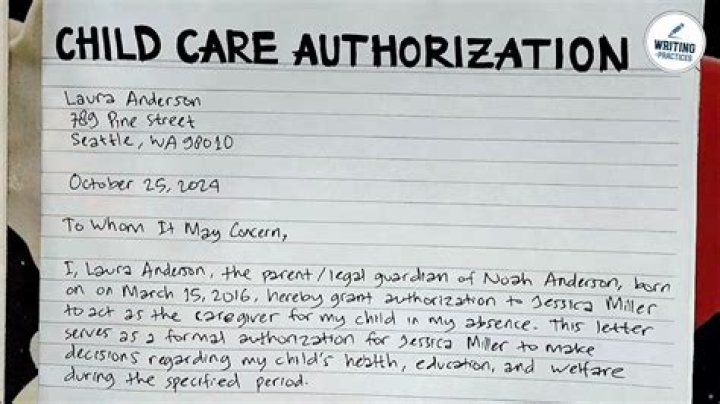 CHILD CARE AUTHORIZATION
WRITING
PRACTICES
Laura Anderson
789 Pine Street
Seattle, WA 98010
October 25, 2024
To Whom It May Concern,
I, Laura Anderson, the parent/legal guardian of Noah Anderson, born
on on March 15, 2016, hereby grant authorization to Jessica Miller
to act as the caregiver for my child in my absence. This letter
serves as a formal authorization for Jessica Miller to make
decisions regarding my child's health, education, and welfare
during the specified period.